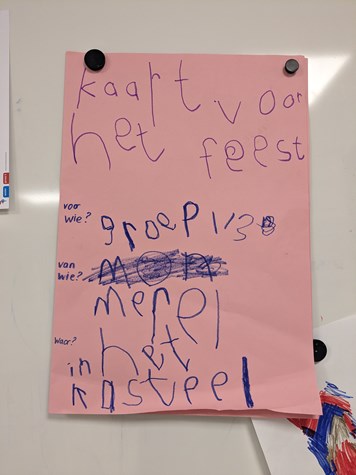 kaart voor
het feest
voor
wie? groep 1/3
van
wie?
merel
waar? het
in
kasteel